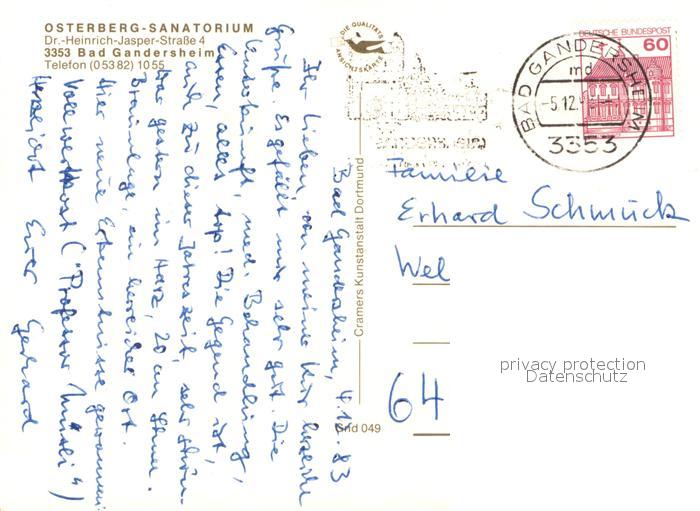 OSTERBERG-SANATORIUM
Dr.-Heinrich-Jasper-Straße 4
3353 Bad Gandersheim
Telefon (0 53 82) 10 55
DIE QUALITÄTS
ANSICHTSKARTE
DEUTSCHE BUNDESPOST
60
BAD GANDERSHEIM
md
-5.12.
3353
Bad Gandersheim, 4.12.83
Ihr Lieben, von meiner Kur herzliche
Grüße. Es gefällt mir sehr gut. Die
Unterkunft, med. Behandlung,
Essen, alles top! Die Gegend ist,
auch zu dieser Jahreszeit, sehr schön.
War gestern im Harz, 20 cm Schnee.
Braunlage, ein herrlicher Ort.
Hier neue Erkenntnisse gewonnen:
Vollwertkost ("Professor Müsli")
Herzlichst Euer Gerhard
Cramers Kunstanstalt Dortmund
Gnd 049
Familie
Erhard Schmück
Wel
64
privacy protection
Datenschutz